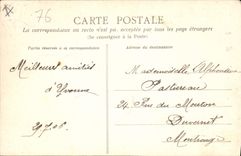 76
CARTE POSTALE
La correspondance au recto n'est pas acceptée par tous les pays étrangers
(Se renseigner à la Poste)
Partie réservée à la correspondance
Adresse du destinataire
Meilleures amitiés
d'Yvonne
Mademoiselle Alphonsine
Pastureau
24 Rue du
Montrouge